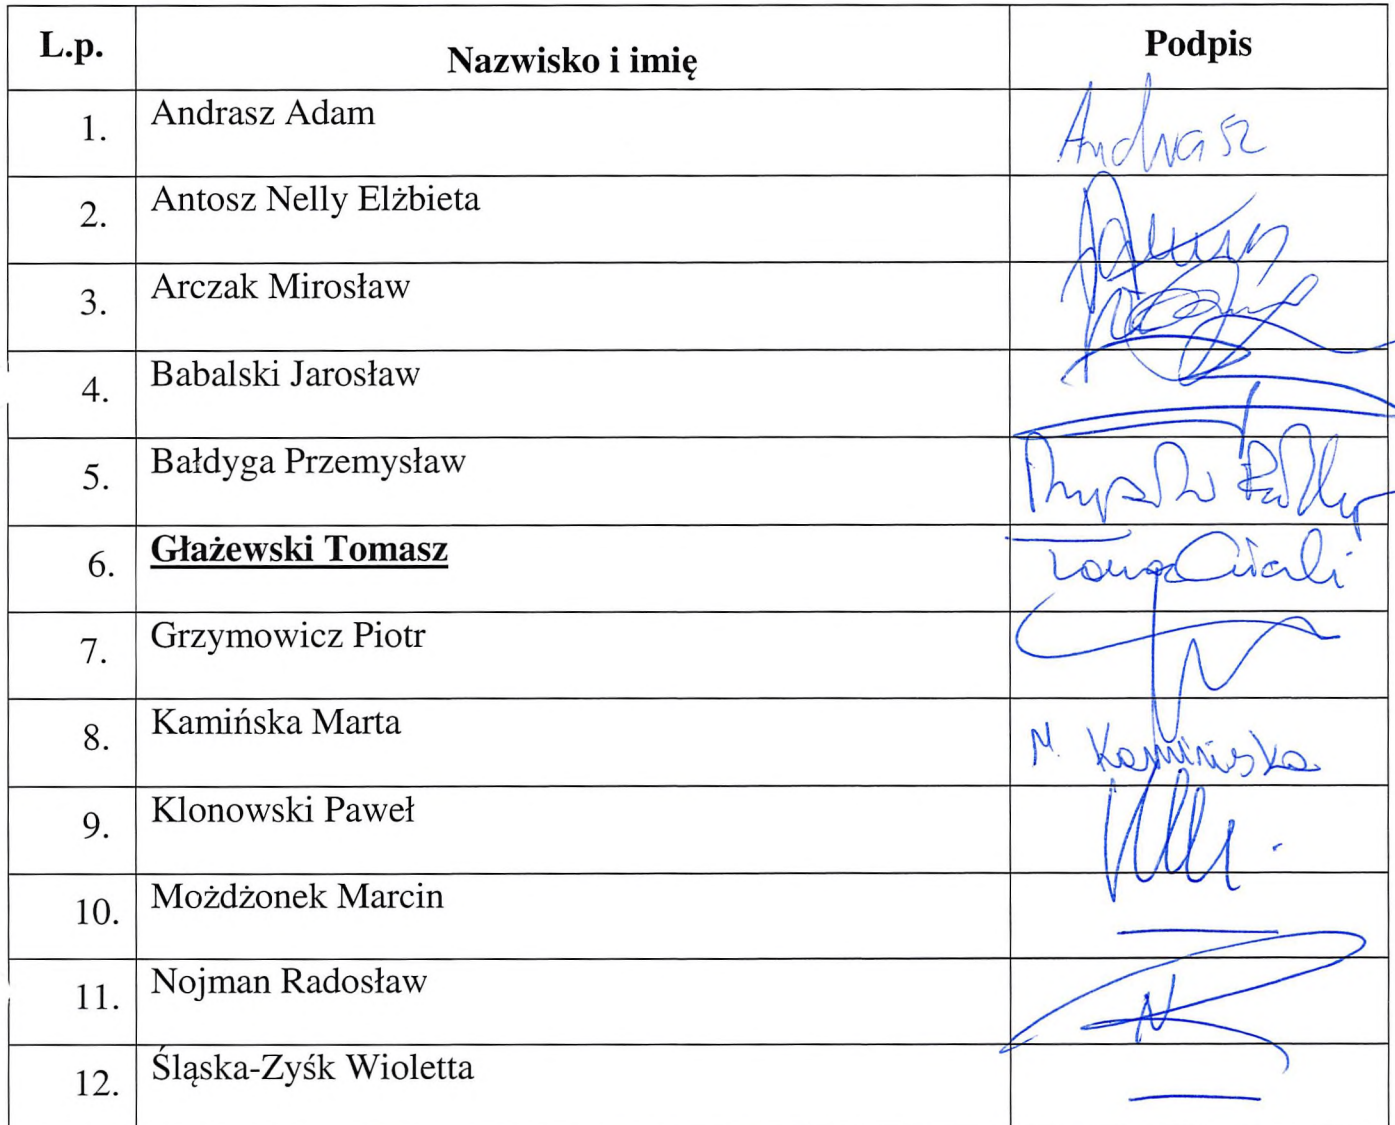 L.p. Nazwisko i imię Podpis
1. Andrasz Adam Andrasz
2. Antosz Nelly Elżbieta
3. Arczak Mirosław
4. Babalski Jarosław
5. Bałdyga Przemysław
6. Głażewski Tomasz
7. Grzymowicz Piotr
8. Kamińska Marta M. Kamińska
9. Klonowski Paweł
10. Możdżonek Marcin
11. Nojman Radosław
12. Śląska-Zyśk Wioletta